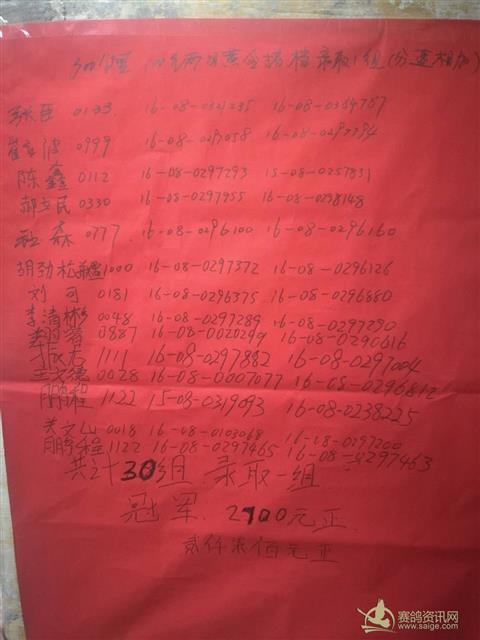 300公里 两羽黄金搭档录取1组(分速相加)
0133 16-08-0321235 16-08-0384787
崔 波 0999 16-08-0297058 16-08-0297794
陈鑫 0112 16-08-0297293 15-08-0257831
郝 民 0330 16-08-0297955 16-08-0238148
森 0777 16-08-0296100 16-08-0296160
胡劲松 1000 16-08-0297372 16-08-0296126
刘 可 0181 16-08-0296375 16-08-0296880
李清彬 0048 16-08-0297289 16-08-0297290
0887 16-08-0020299 16-08-0290616
1111 16-08-0297882 16-08-0297004
0028 16-08-0007077 16-08-0296812
鹏程 1122 15-08-0319093 16-08-0238225
关文山 0018 16-08-0103068 16-08-0197200
鹏程 1122 16-08-0297465 16-08-0297463
共计30组 录取一组
冠军 2700元正
贰仟柒佰元正
赛鸽资讯网
www.saige.com